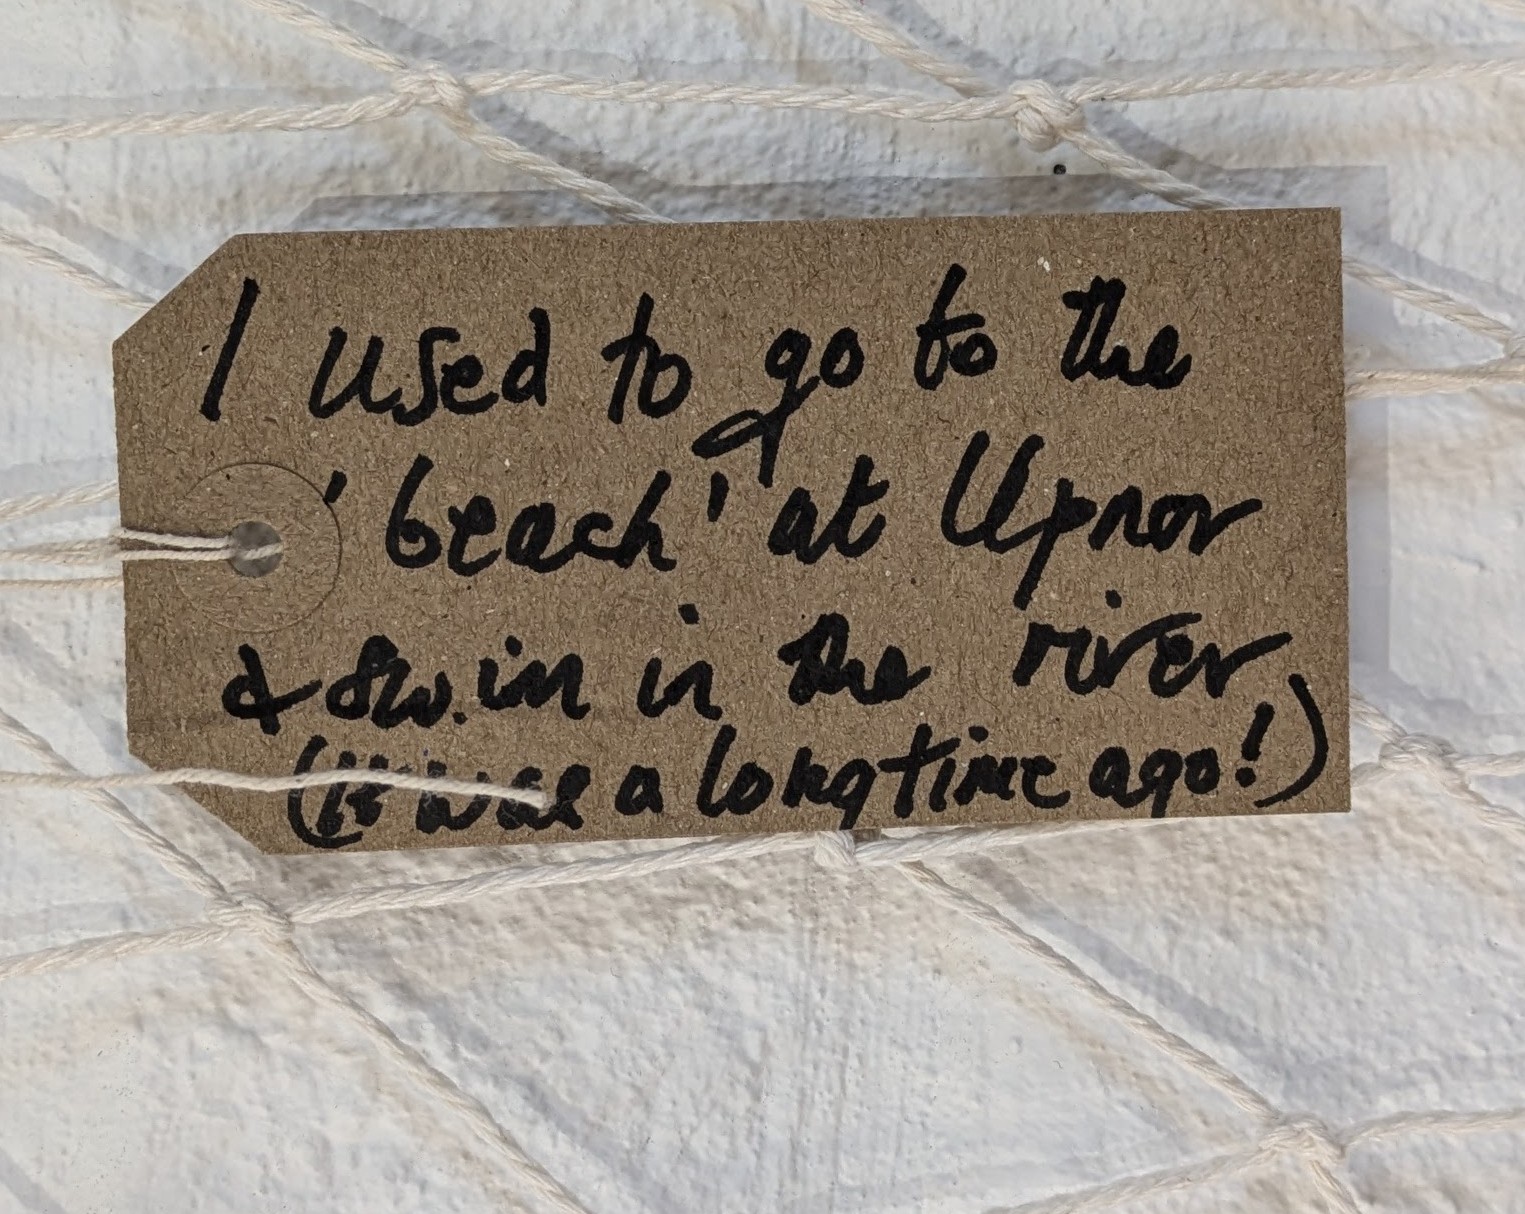 I used to go to the
'beach' at Upnor
& swim in the river
(It was a long time ago!)